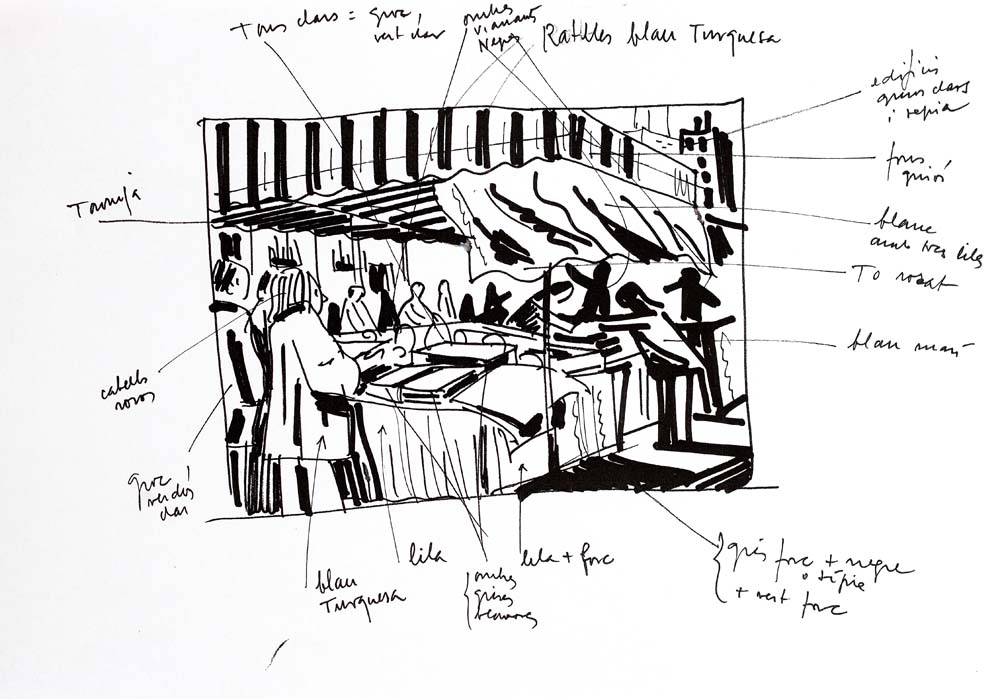 Tons clars = groc,
vert clar
ombres
vianants
Negres
Ratlles blau Turquesa
edificis
grisos clars
i sepia
fons
grisós
Taronja
blanc
amb tros lila
To rosat
blau marí
cabells
rosos
groc
verdós
clar
blau
Turquesa
lila
ombres
grises
lila + fosc
gris fosc + negre
o sépia
+ vert fosc